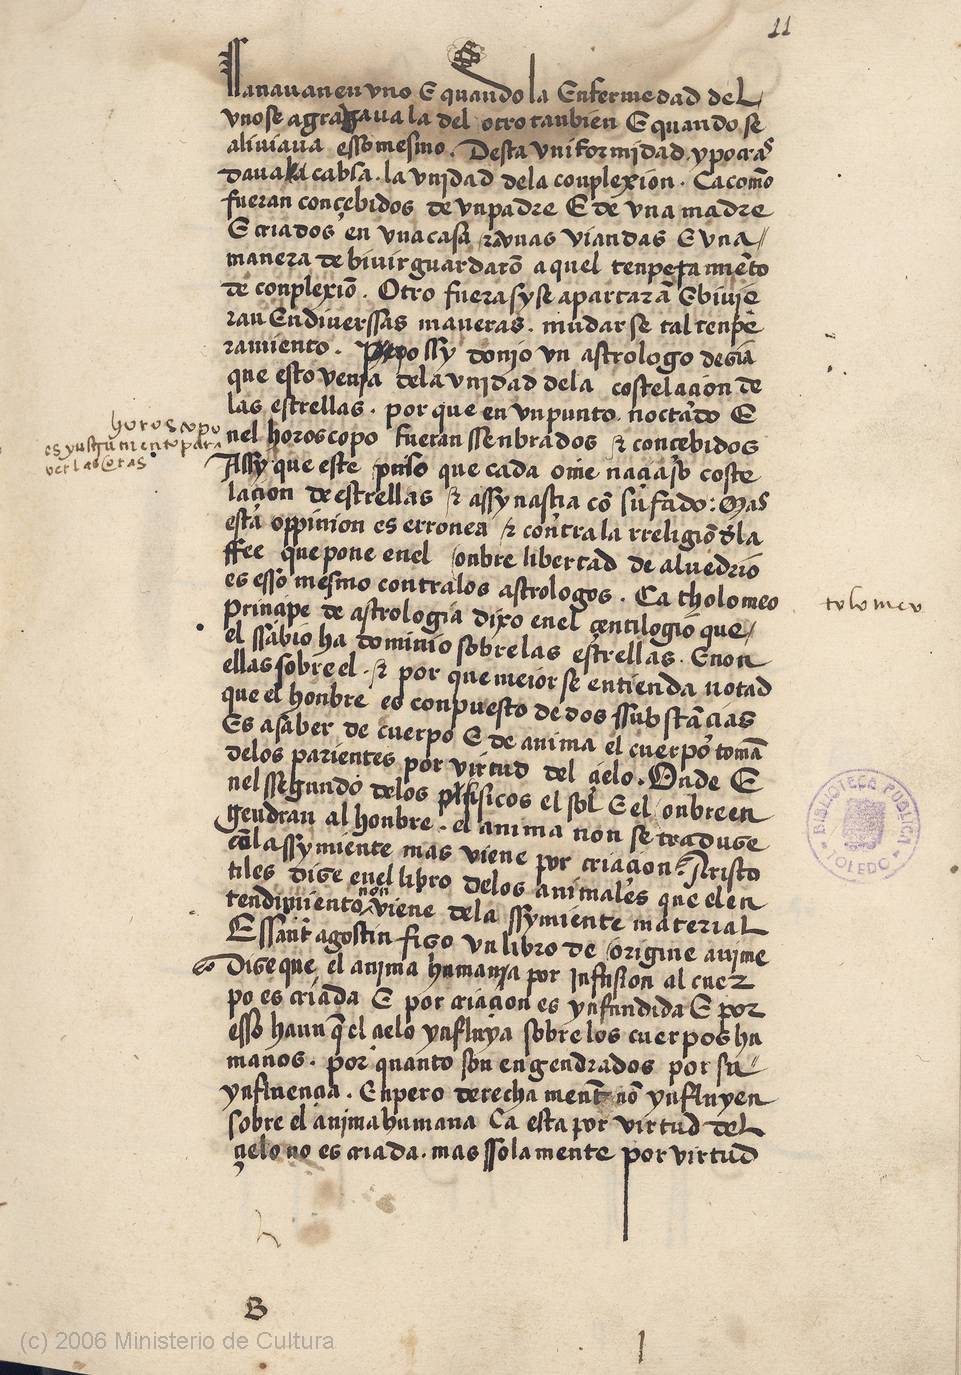 11
sanauan en vno E quando la Enfermedad del
vno se agrauaua la del otro tanbien E quando se
aliuiaua esso mesmo. Desta vniformidad ypocras
daua la cabsa. la vnidad dela conplexion. Ca commo
fueran conçebidos de vn padre E de vna madre
E criados en vna casa & a vnas viandas E vna
manera de biuir guardarõ aquel tenperamiẽto
de conplexiõ. Otro fuera sy se apartarã E biuie
ran En diuerssas maneras. mudarse tal tenpe
ramiento. possydonjo vn astrologo desia
que esto venja dela vnidad dela costelacion de
las estrellas. por que en vn punto notado E
nel horoscopo fueran ssenbrados & concebidos
horoscopo
es ynstrumento para
ver las oras
Assy que este puso que cada ome naçia so coste
laçion de estrellas & assy nasçia cõ su fado: Mas
esta oppinion es erronea & contra la rreligiõ dela
ffee que pone enel onbre libertad de aluedrio
es esso mesmo contra los astrologos. Ca tholomeo
tolomeo
prinçipe de astrologia dixo enel çentilogio que
el sabio ha dominio sobre las estrellas. E non
ellas sobre el. & por que meior se entienda notad
que el honbre es conpuesto de dos ssubstãcias
Es a saber de cuerpo E de anima el cuerpo tomã
delos parientes por virtud del çielo. Onde E
nel segundo delos phisicos el sol E el onbre en
gendran al honbre. el anima non se traduse
cõ la ssymiente mas viene por criaçion. Aristo
tiles dise enel libro delos animales que el en
tendimiento non viene dela ssymiente material
E ssant agostin fiso vn libro de origine anime
Dise que el anima humana por Infusion al cuer
po es criada E por criaçion es ynfundida E por
esso haun q̃ el çielo ynfluya sobre los cuerpos hu
manos. por quanto son engendrados por su
ynfluençia. Enpero derecha mente nõ ynfluyen
sobre el anima humana Ca esta por virtud del
çielo no es criada. mas ssolamente por virtud
B
BIBLIOTECA PUBLICA
TOLEDO
(c) 2006 Ministerio de Cultura